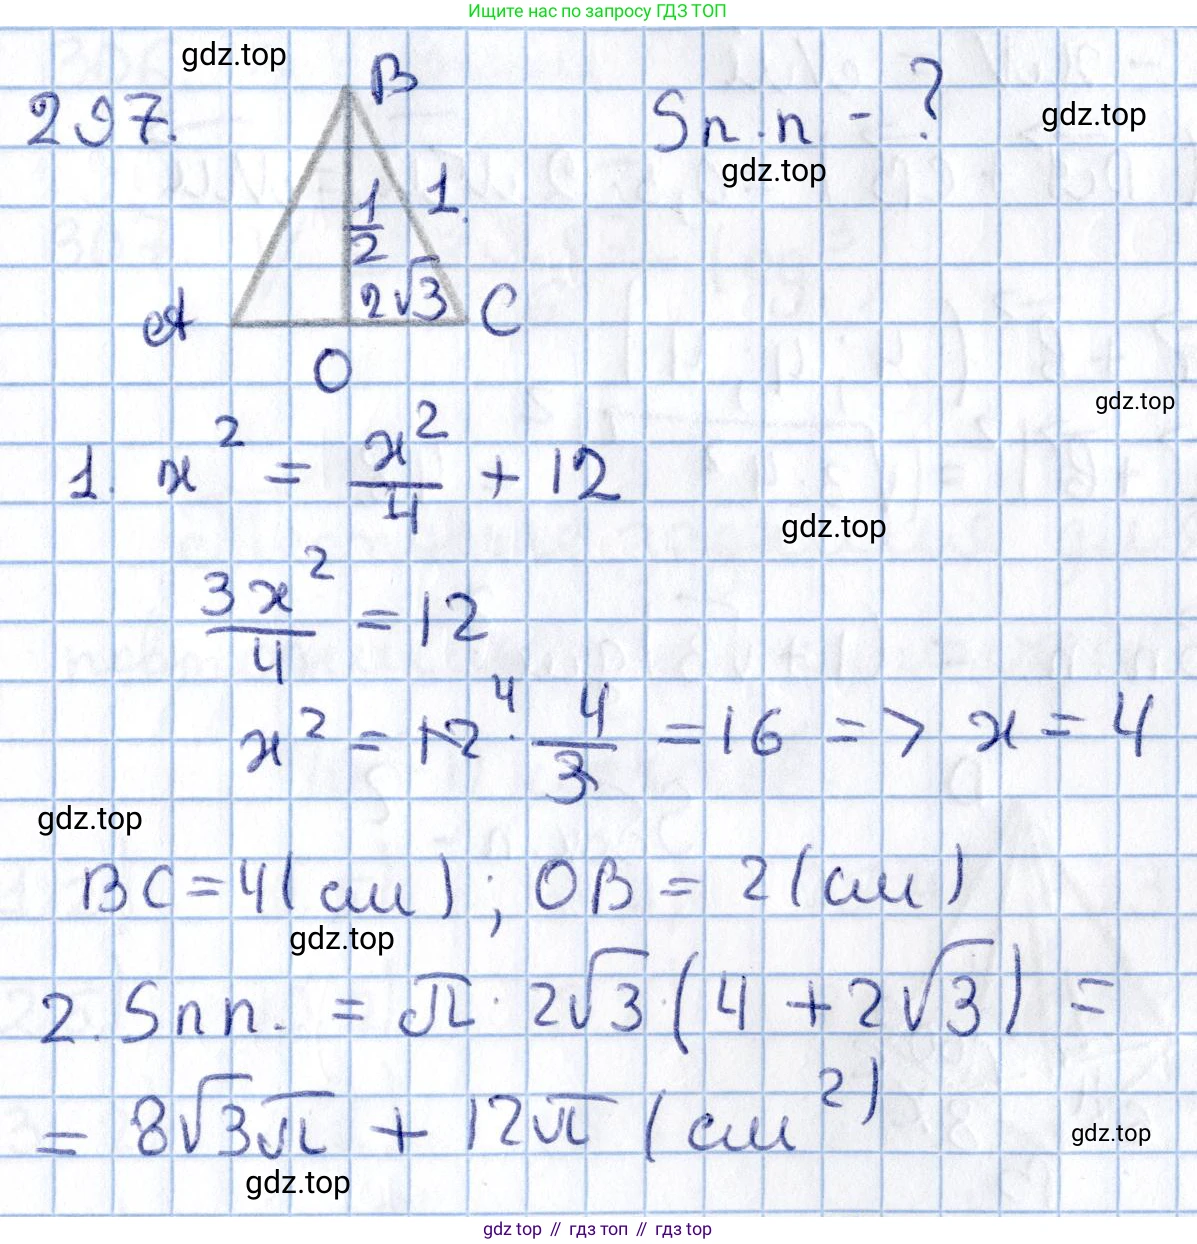 Ищите нас по запросу ГДЗ ТОП
gdz.top
297.
B
Sп.п - ?
gdz.top
gdz.top
1/2
1
2√3
A
C
O
gdz.top
1. x² = x²/4 + 12
gdz.top
3x²/4 = 12
x² = 12⁴ · 4/3 = 16 => x = 4
gdz.top
BC = 4 (см) ; OB = 2 (см)
gdz.top
2. Sпп. = π · 2√3 (4 + 2√3) =
= 8√3π + 12π (см²)
gdz.top
gdz.top
gdz top // гдз топ // гдз top